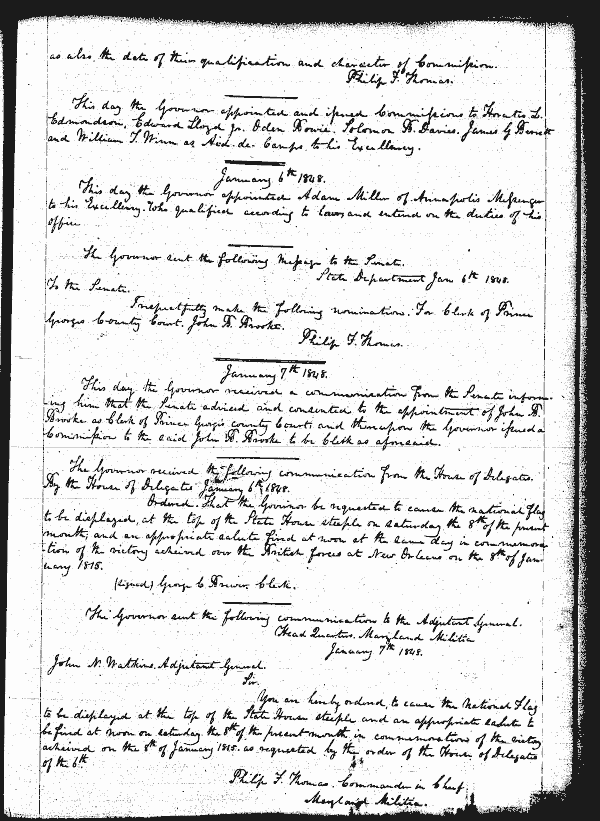 as also, the date of their qualification and character of Commission.
Philip F. Thomas.
This day the Governor appointed and issued Commissions to Horatio L.
Edmondson, Edward Lloyd Jr. Oden Bowie, Solomon B. Davies, James G Berrett
and William T. Winn as Aid. de. Camps. to his Excellency.
January 6th 1848.
This day the Governor appointed Adam Miller of Annapolis Messenger
to his Excellency. Who qualified according to laws and entered on the duties of his
office.
The Governor sent the following Message to the Senate.
State Department Jan 6th 1848.
To the Senate.
I respectfully make the following nomination. For Clerk of Prince
Georges County Court. John B. Brooke.
Philip F. Thomas.
January 7th 1848.
This day the Governor received a communication from the Senate inform-
ing him that the Senate advised and consented to the appointment of John B.
Brooke as Clerk of Prince Georges county Court and thereupon the Governor issued a
Commission to the said John B. Brooke to be Clerk as aforesaid.
The Governor received the following communication from the House of Delegates.
By the House of Delegates January 6th 1848.
Ordered. That the Governor be requested to cause the national flag
to be displayed, at the top of the State House steeple on saturday the 8th of the present
month, and an appropriate salute fired at noon at the same day in commemora-
tion of the victory achieved over the British forces at New Orleans on the 8th of Jan-
uary 1815.
(signed) George C Brewer. Clerk.
The Governor sent the following communication to the Adjutant General.
Head Quarters. Maryland Militia
January 7th 1848.
John N. Watkins. Adjutant General.
Sir.
You are hereby ordered, to cause the National Flag
to be displayed at the top of the State House steeple and an appropriate salute to
be fired at noon on saturday the 8th of the present month in commemoration of the victory
achieved on the 8th of January 1815. as requested by the order of the House of Delegates
of the 6th
Philip F. Thomas. Commander in Chief
Maryland Militia.